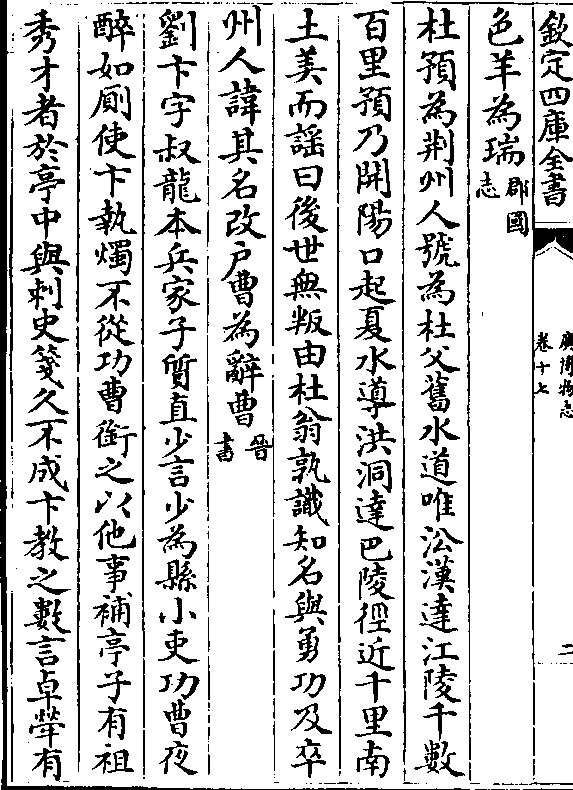 欽定四庫全書
廣博物志
卷十七
二
色羊為瑞郡國志
杜預為荆州人號為杜父舊水道唯沿漢達江陵千數
百里預乃開陽口起夏水導洪洞達巴陵徑近千里南
土美而謡曰後世無叛由杜翁孰識知名與勇功及卒
州人諱其名改戶曹為辭曹晉書
劉卞字叔龍本兵家子質直少言少為縣小吏功曹夜
醉如厠使卞執燭不從功曹銜之以他事補亭子有祖
秀才者於亭中與刺史箋久不成卞教之數言卓犖有